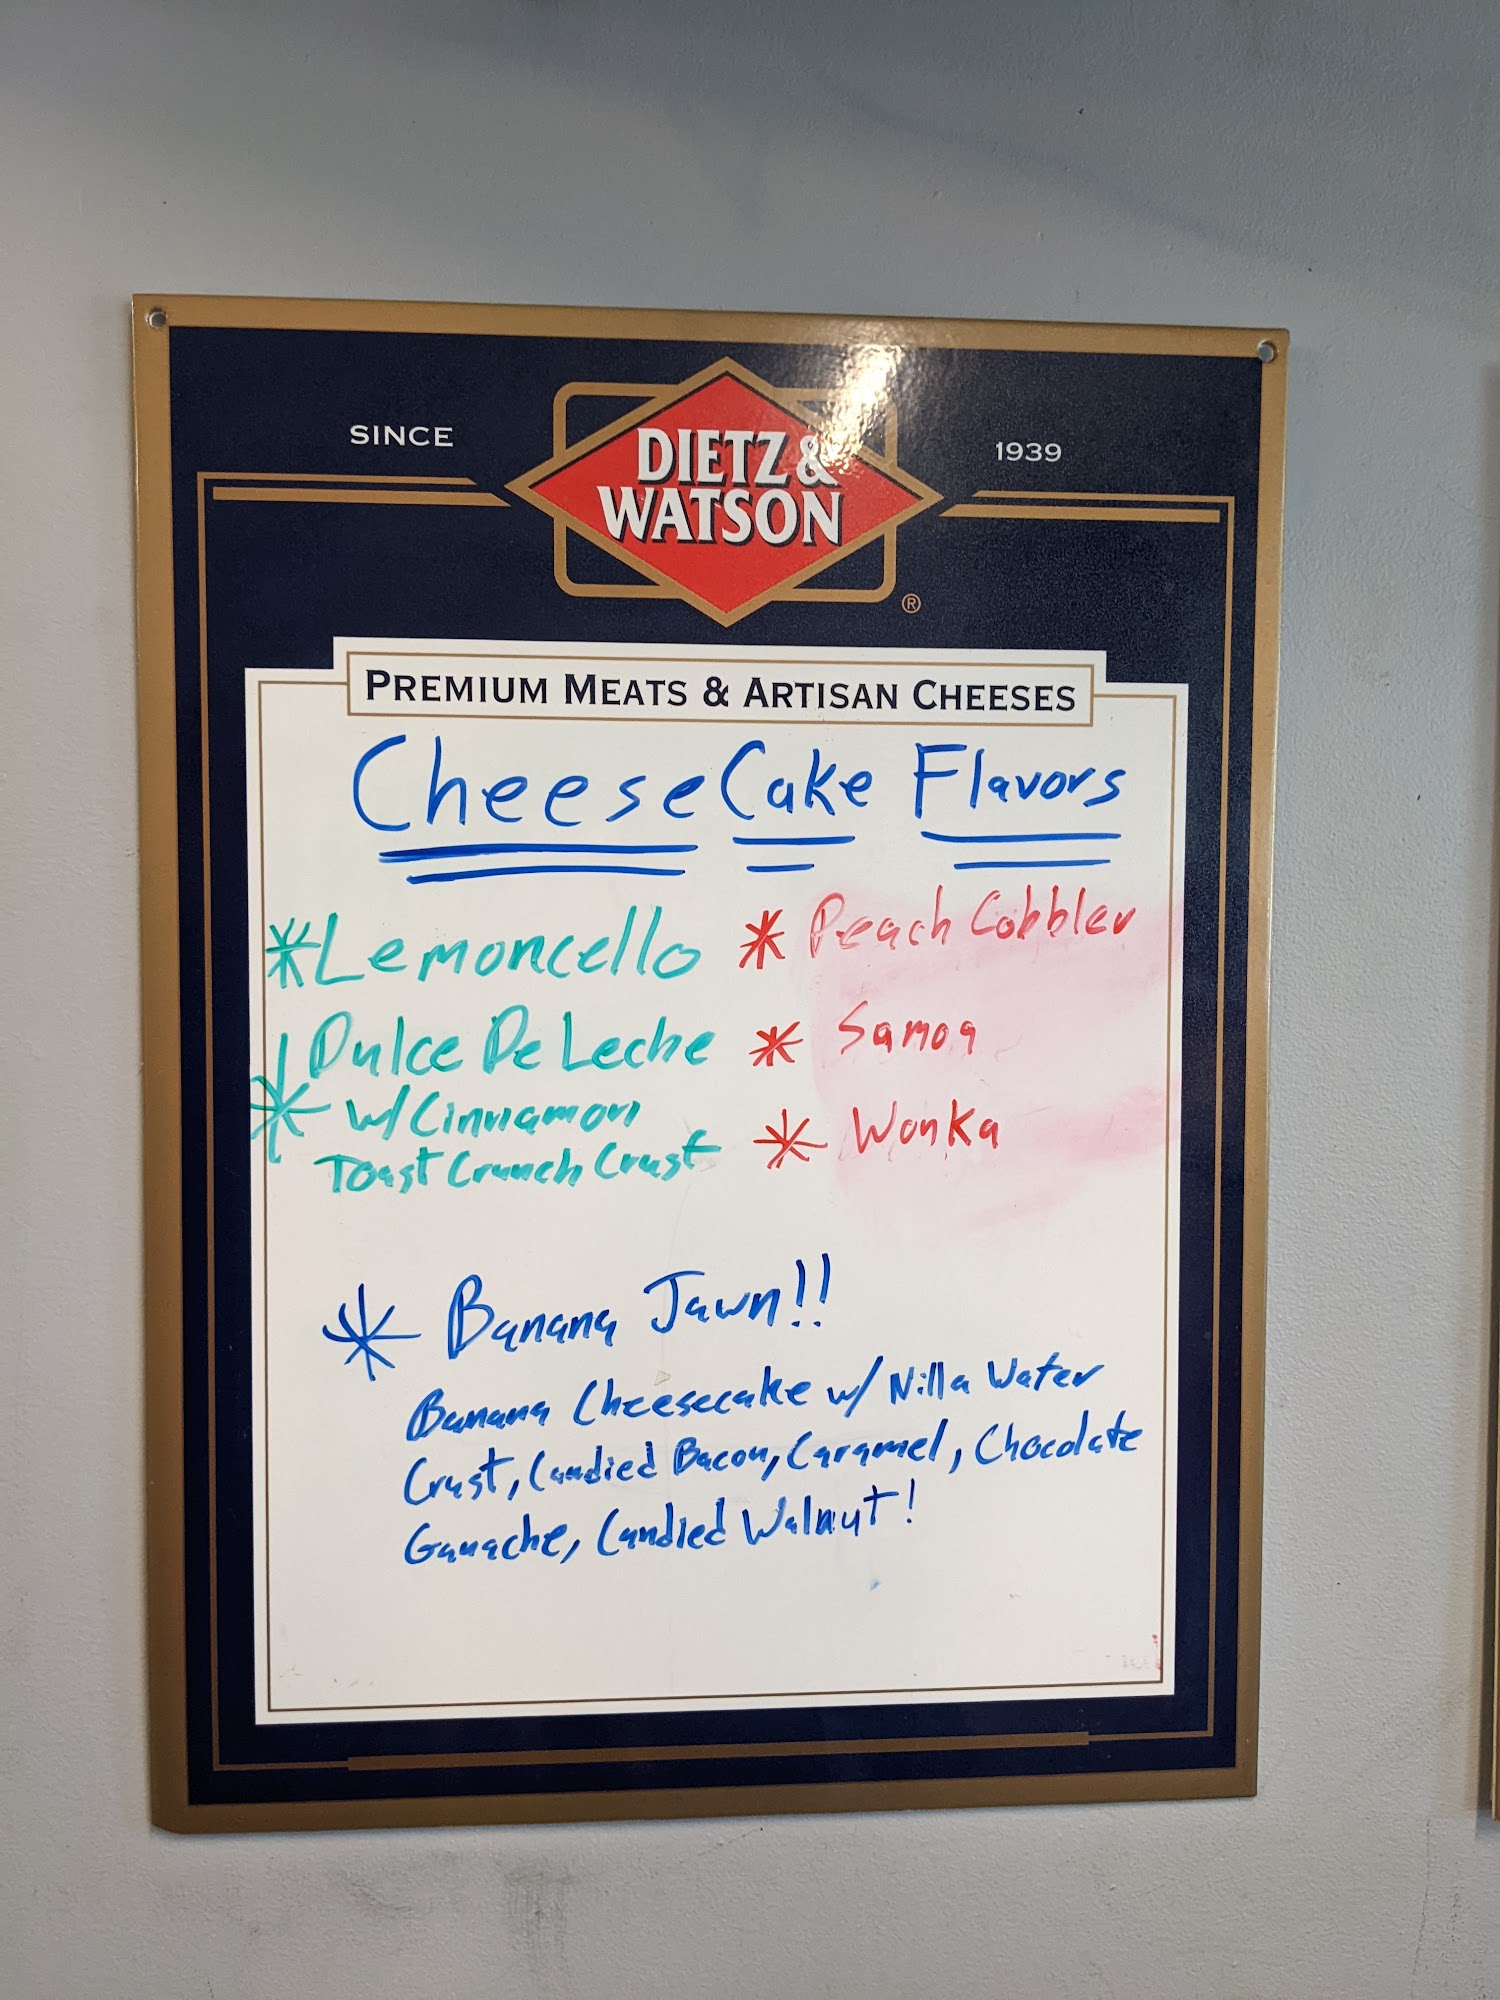 SINCE
DIETZ &
WATSON
1939
®
PREMIUM MEATS & ARTISAN CHEESES
CheeseCake Flavors
* Lemoncello
* Peach Cobbler
* Dulce De Leche
w/ Cinnamon
Toast Crunch Crust
* Samoa
* Wonka
* Banana Jawn!!
Banana Cheesecake w/ Nilla Water
Crust, Candied Bacon, Caramel, Chocolate
Ganache, Candied Walnut!